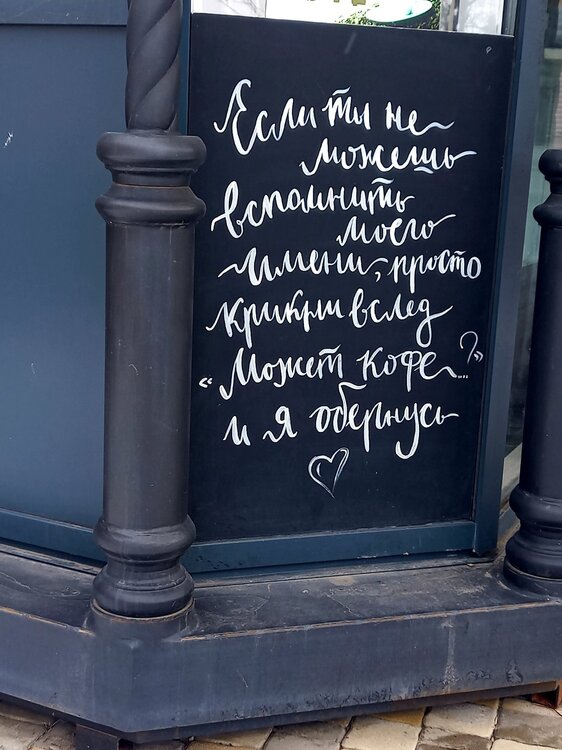 Если ты не
можешь
вспомнить
моего
имени, просто
крикни вслед
«Может кофе...?»
и я обернусь